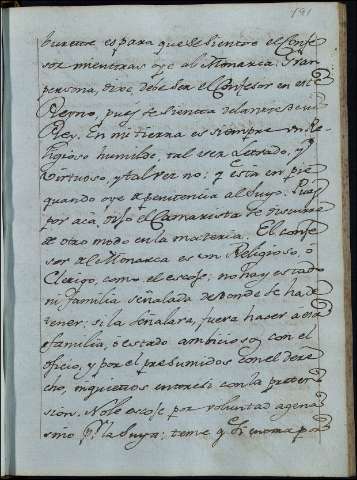 191
burette es para que se siente el Confe
sor mientras oye al Monarca. Gran
persona, dixe, debe ser el Confesor en este
Reyno, pues se sienta delante de su
Rey. En mi tierra es siempre un Re
ligioso humilde, tal vez Letrado, y
virtuoso, y tal vez no; y esta en pie
quando oye de penitencia al suyo. Pues
por acá, dijo el Camarista se discurre
de otro modo en la materia. El confe
sor del Monarca es un Religioso, ó
Clerigo, como el escoje: no hay estado
ni familia señalada de donde se ha de
tener; si la señalara, fuera haser a esa
familia, ó estado ambicioso con el
oficio, y por el presumidos con el dere
cho, inquietos entre si con la preten
sion. No le escoje por voluntad agena
sino pr. la suya: teme q. si entra por